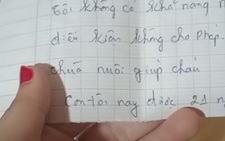 tôi không có khả năng n
điều kiện không cho phép.
chùa nuôi giúp cháu
Con tôi nay được 21 n